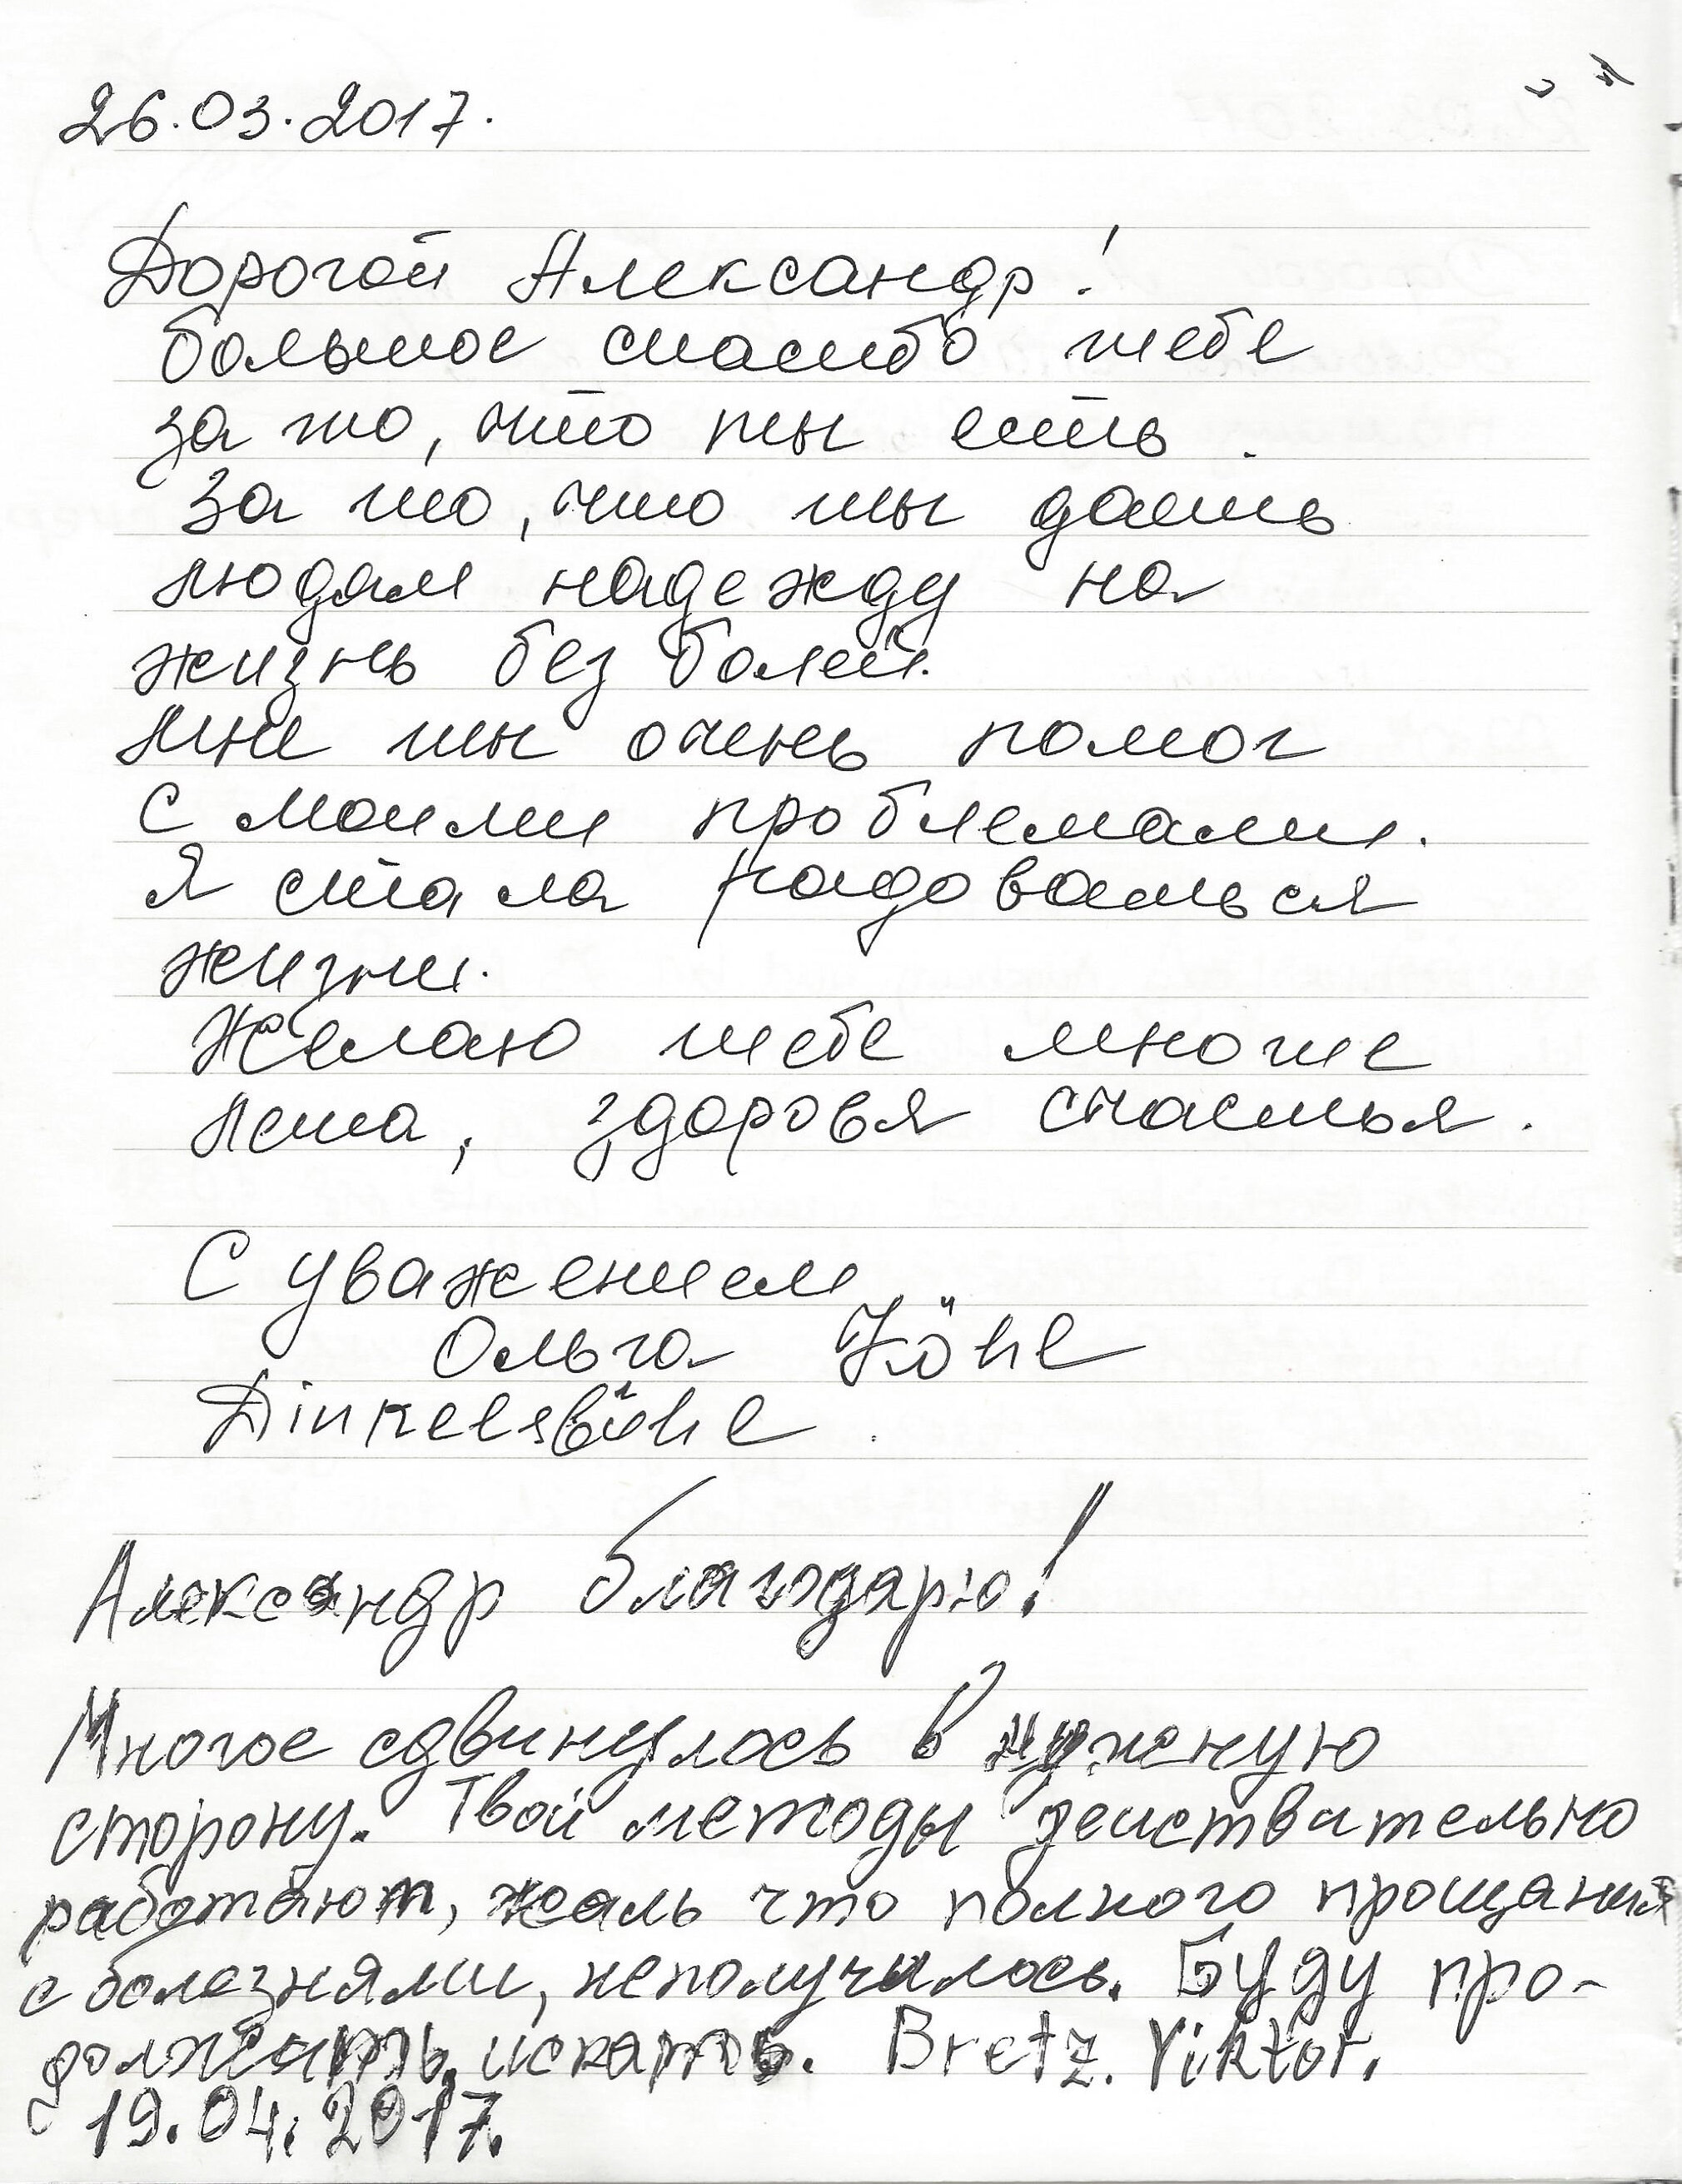 26.03.2017.
Дорогой Александр!
большое спасибо тебе
за то, что ты есть.
За то, что ты даешь
людям надежду на
жизнь без болей.
Мне ты очень помог
с моими проблемами.
Я стала радоваться
жизни.
Желаю тебе многие
лета, здоровя счастья.
С уважением
Ольга Jöhl
Dinkelsbühl.
Александр благодарю!
Многое сдвинулось в нужную
сторону. Твои методы действительно
работают, жаль что полного прощания
с болезнями, неполучилось. Буду про-
должать искать. Bretz. Viktor.
19.04.2017.